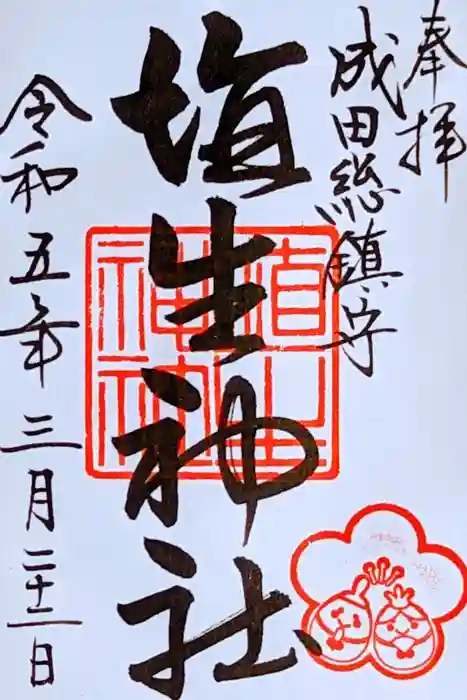 奉拝
成田総鎮守
埴生神社
令和五年三月二十二日